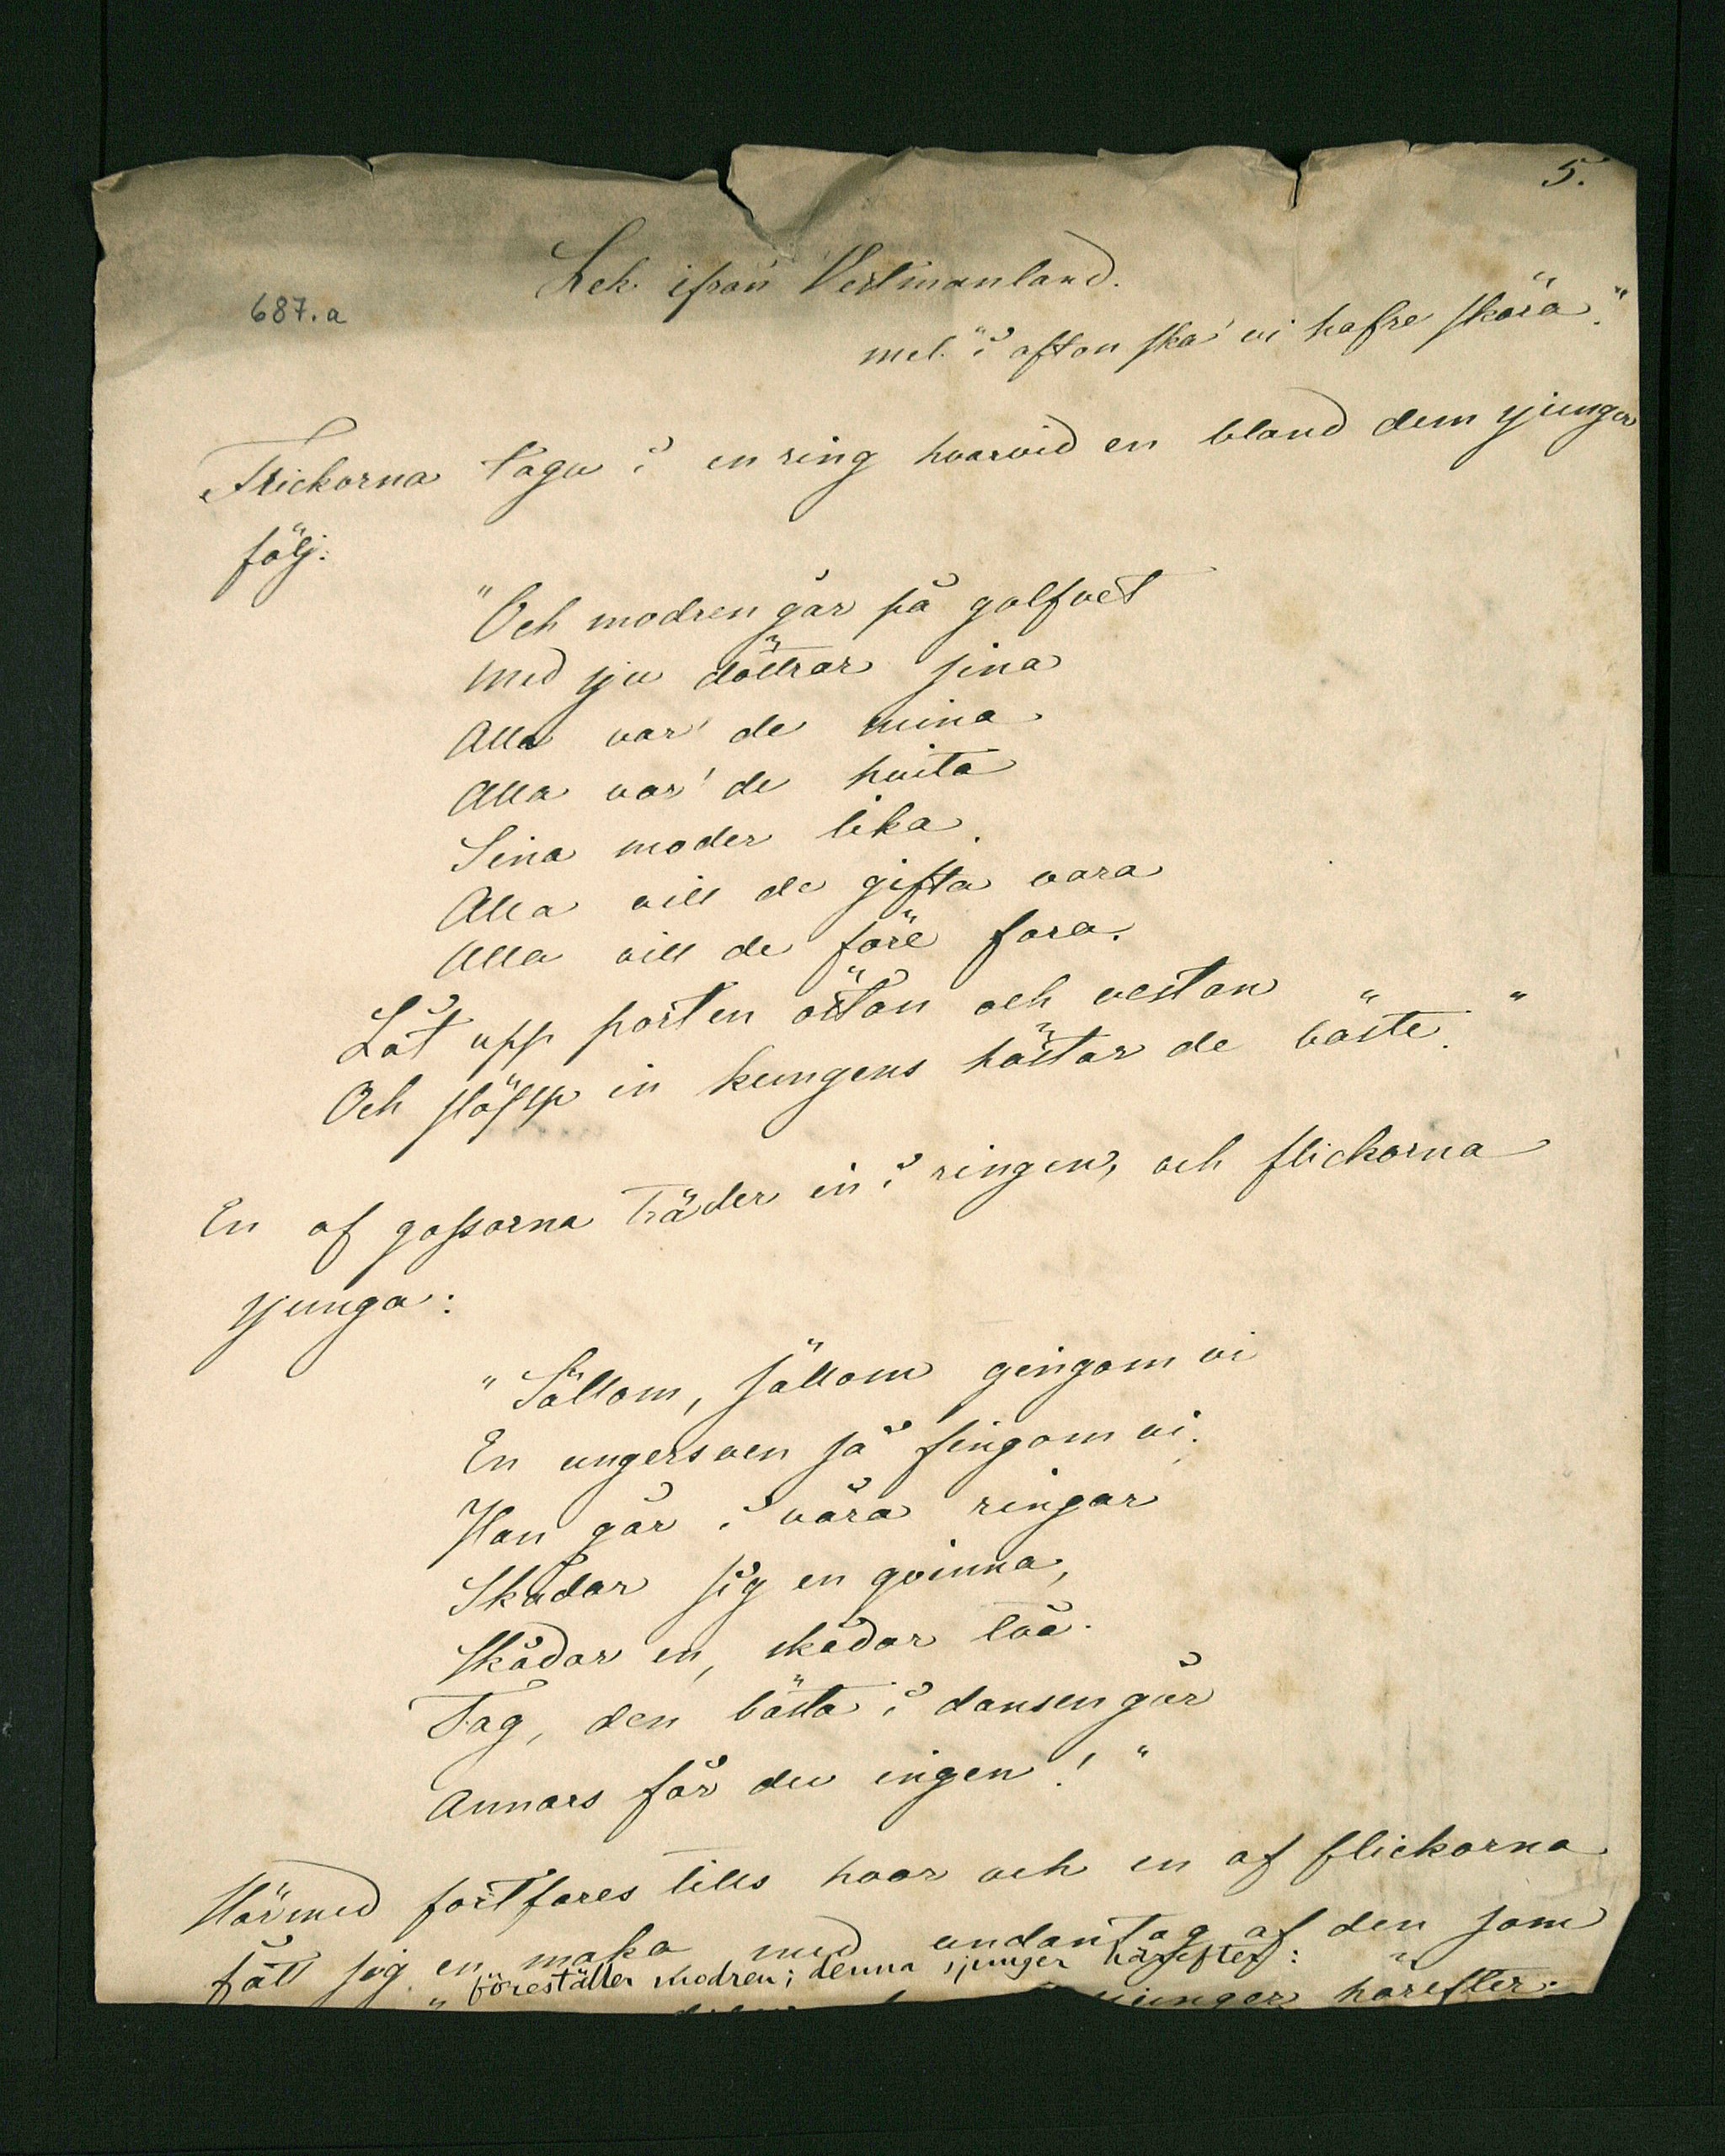 5.
Lek ifrån Vestmanland.
687.a
mel. "i afton ska' vi hafre skära".
Flickorna taga i en ring hvarvid en bland dem sjunger
följ:
"Och modren går på golfvet
Med sju döttrar sina
Alla var' de mina
Alla var' de hvita
Sina moder lika.
Alla vill de gifta vara
Alla vill de före fara.
Låt upp porten östan och vestan
Och släpp in kungens hästar de bäste."
En af gossarna träder in i ringen, och flickorna
sjunga:
"Sällom, sällom gingom vi
En ungersven så fingom vi.
Han går i våra ringar
Skådar sig en qvinna,
Skådar en, skådar två.
Tag, den bästa i dansen går
Annars får du ingen!"
Härmed fortfares tills hvar och en af flickorna
fått sig en maka med undantag af den som
föreställer modren; denna sjunger härefter:
sjunger härefter: